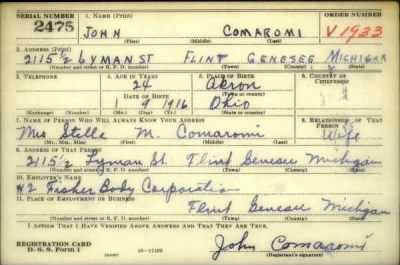 SERIAL NUMBER 1. NAME (Print) ORDER NUMBER
2475 JOHN COMAROMI V1933
(First) (Middle) (Last)
2. ADDRESS (Print)
2115 1/2 LYMAN ST FLINT GENESEE MICHIGAN
(Number and street or R. F. D. number) (Town) (County) (State)
3. TELEPHONE 4. AGE IN YEARS 5. PLACE OF BIRTH 6. COUNTRY OF CITIZENSHIP
24 Akron
DATE OF BIRTH (Town or county)
1 9 1916 Ohio
(Exchange) (Number) (Mo.) (Day) (Yr.) (State or country)
7. NAME OF PERSON WHO WILL ALWAYS KNOW YOUR ADDRESS 8. RELATIONSHIP OF THAT PERSON
Mrs Stella M. Comaromi Wife
(Mr., Mrs., Miss) (First) (Middle) (Last)
9. ADDRESS OF THAT PERSON
2115 1/2 Lyman St. Flint Genesee Michigan
(Number and street or R. F. D. number) (Town) (County) (State)
10. EMPLOYER'S NAME
#2 Fisher Body Corporation
11. PLACE OF EMPLOYMENT OR BUSINESS
Flint Genesee Michigan
(Number and street or R. F. D. number) (Town) (County) (State)
I AFFIRM THAT I HAVE VERIFIED ABOVE ANSWERS AND THAT THEY ARE TRUE.
REGISTRATION CARD
D. S. S. Form 1
John Comaromi
(Registrant's signature)